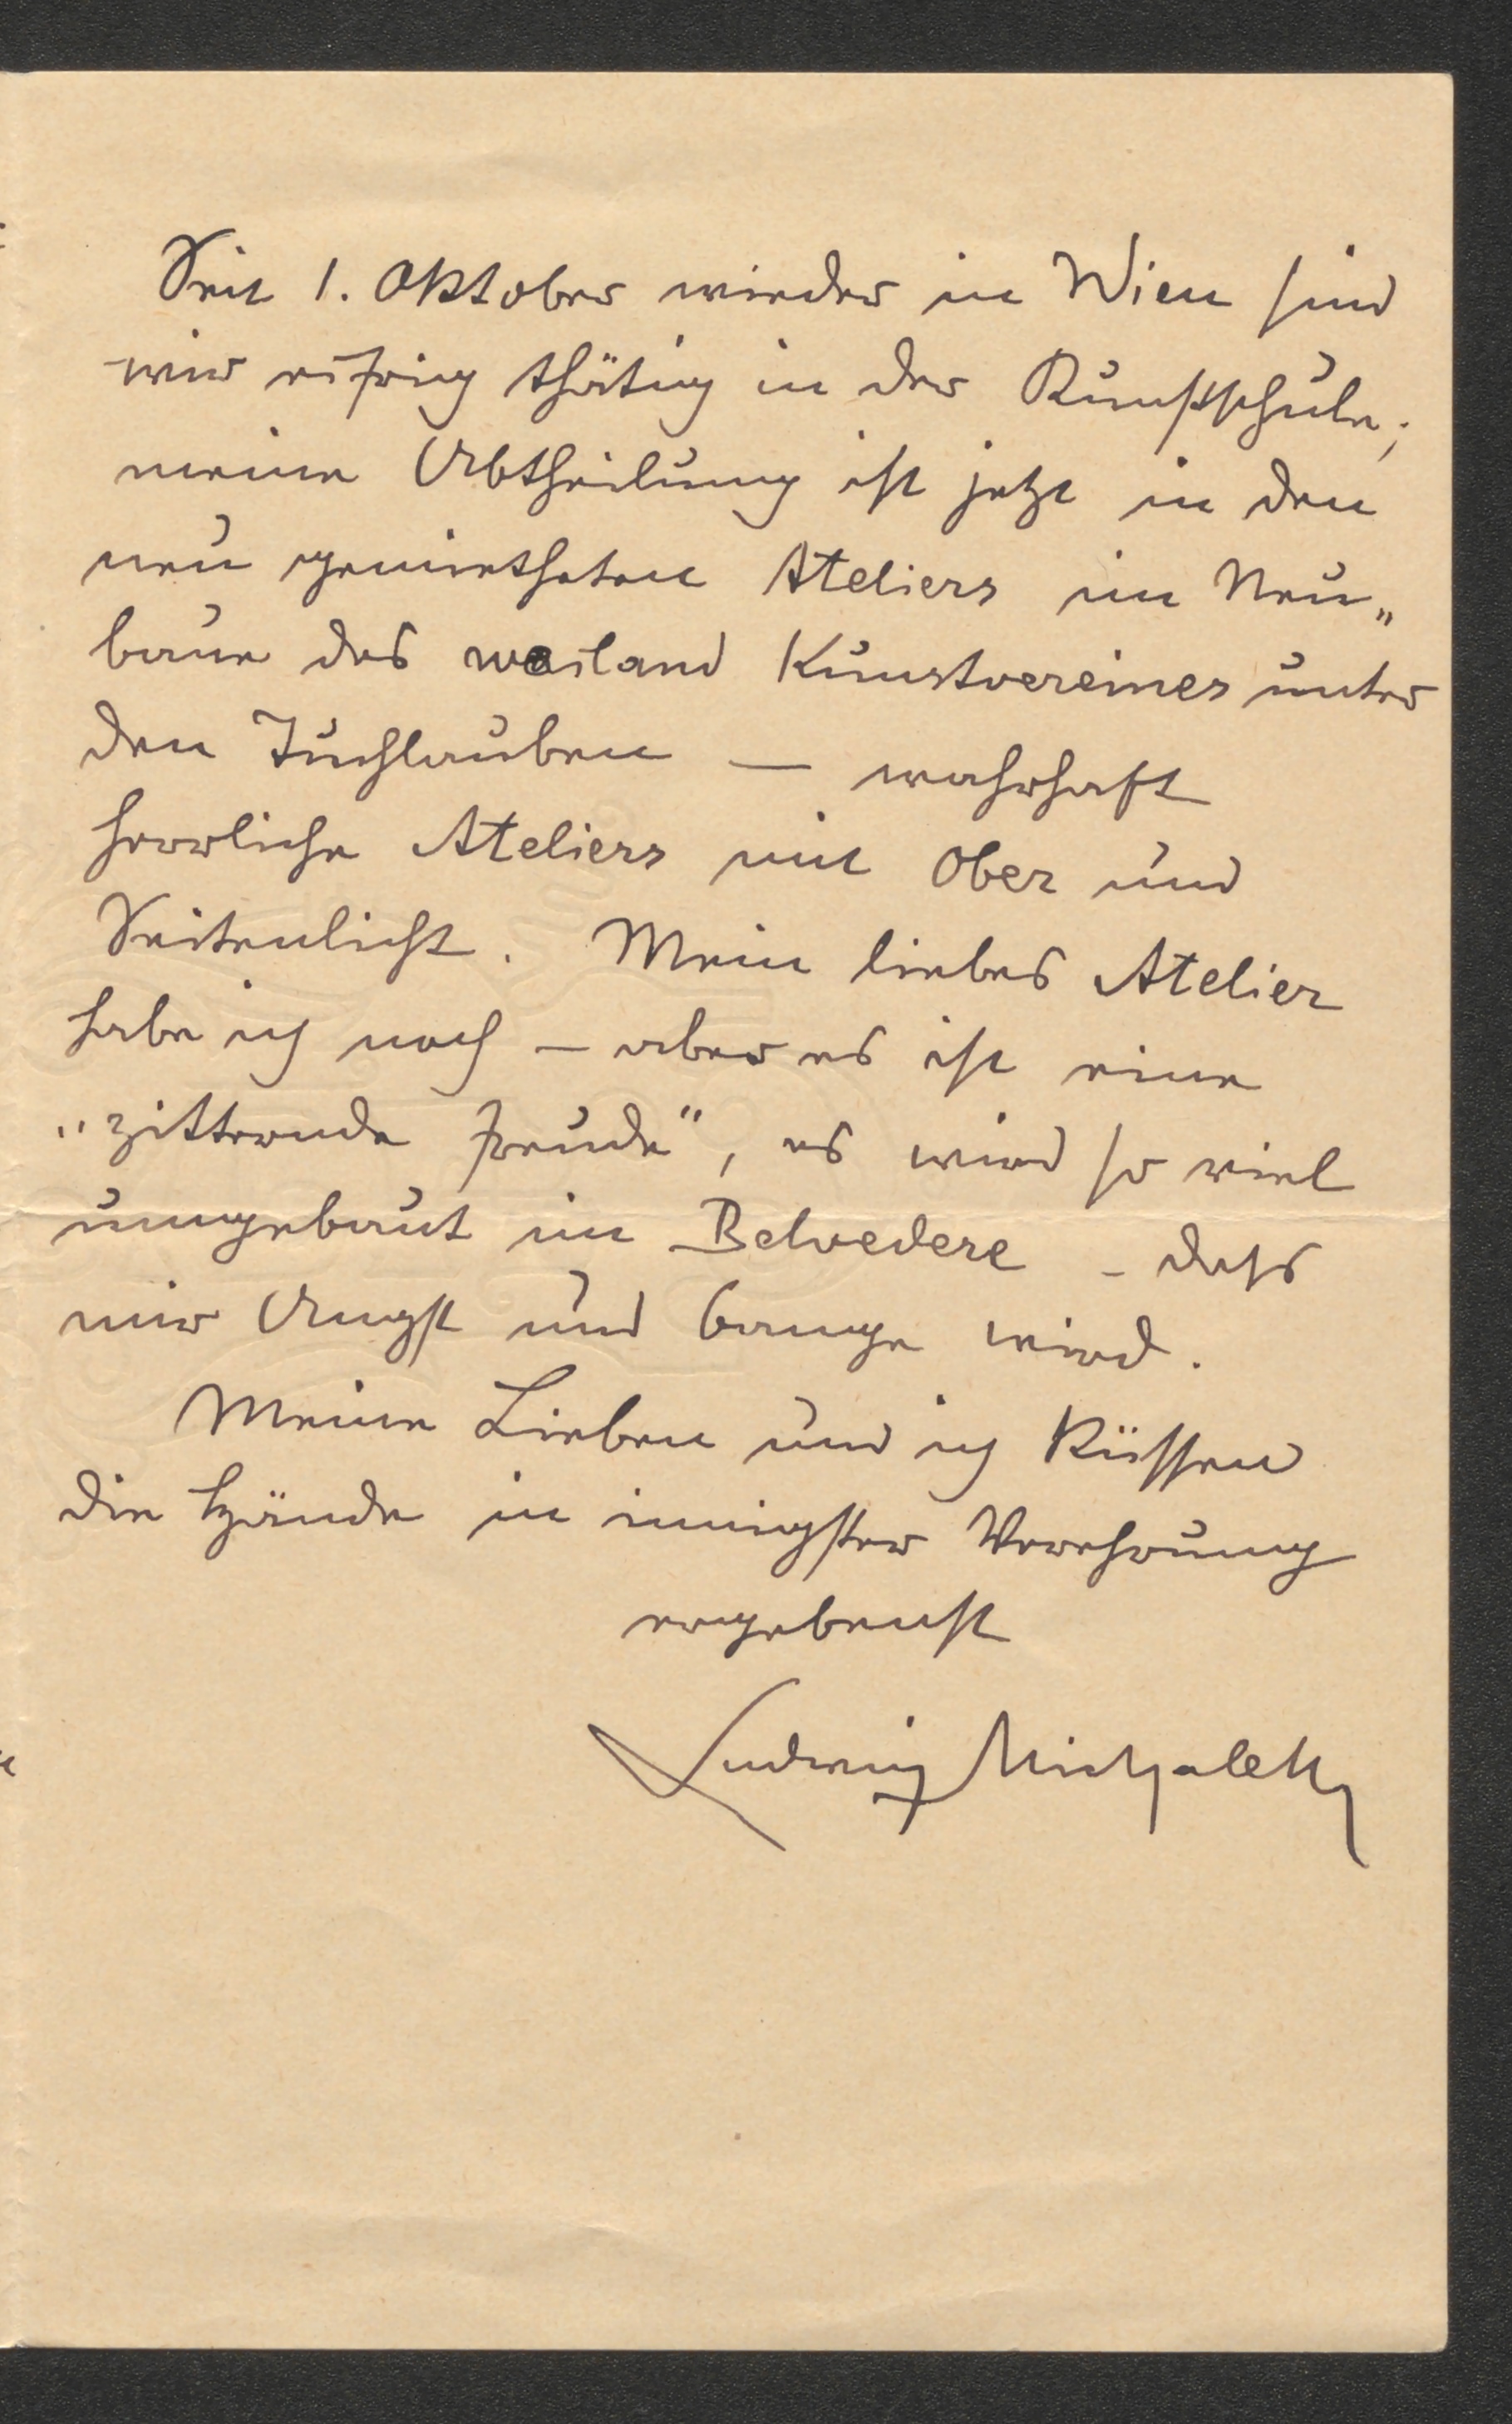 Seit 1. Oktober wieder in Wien sind
wir eifrig thätig in der Kunstschule;
meine Abtheilung ist jetzt in den
neu gemietheten Ateliers im Neu„
baue des weiland Kunstvereines unter
den Tuchlauben — wahrhaft
herrliche Ateliers mit Ober und
Seitenlicht. Mein liebes Atelier
habe ich noch — aber es ist eine
„zitternde Freude“, es wird so viel
umgebaut im Belvedere – dass
mir Angst und bange wird.
Meine Lieben und ich küssen
die Hände in innigster Verehrung
ergebenst
Ludwig Michalek